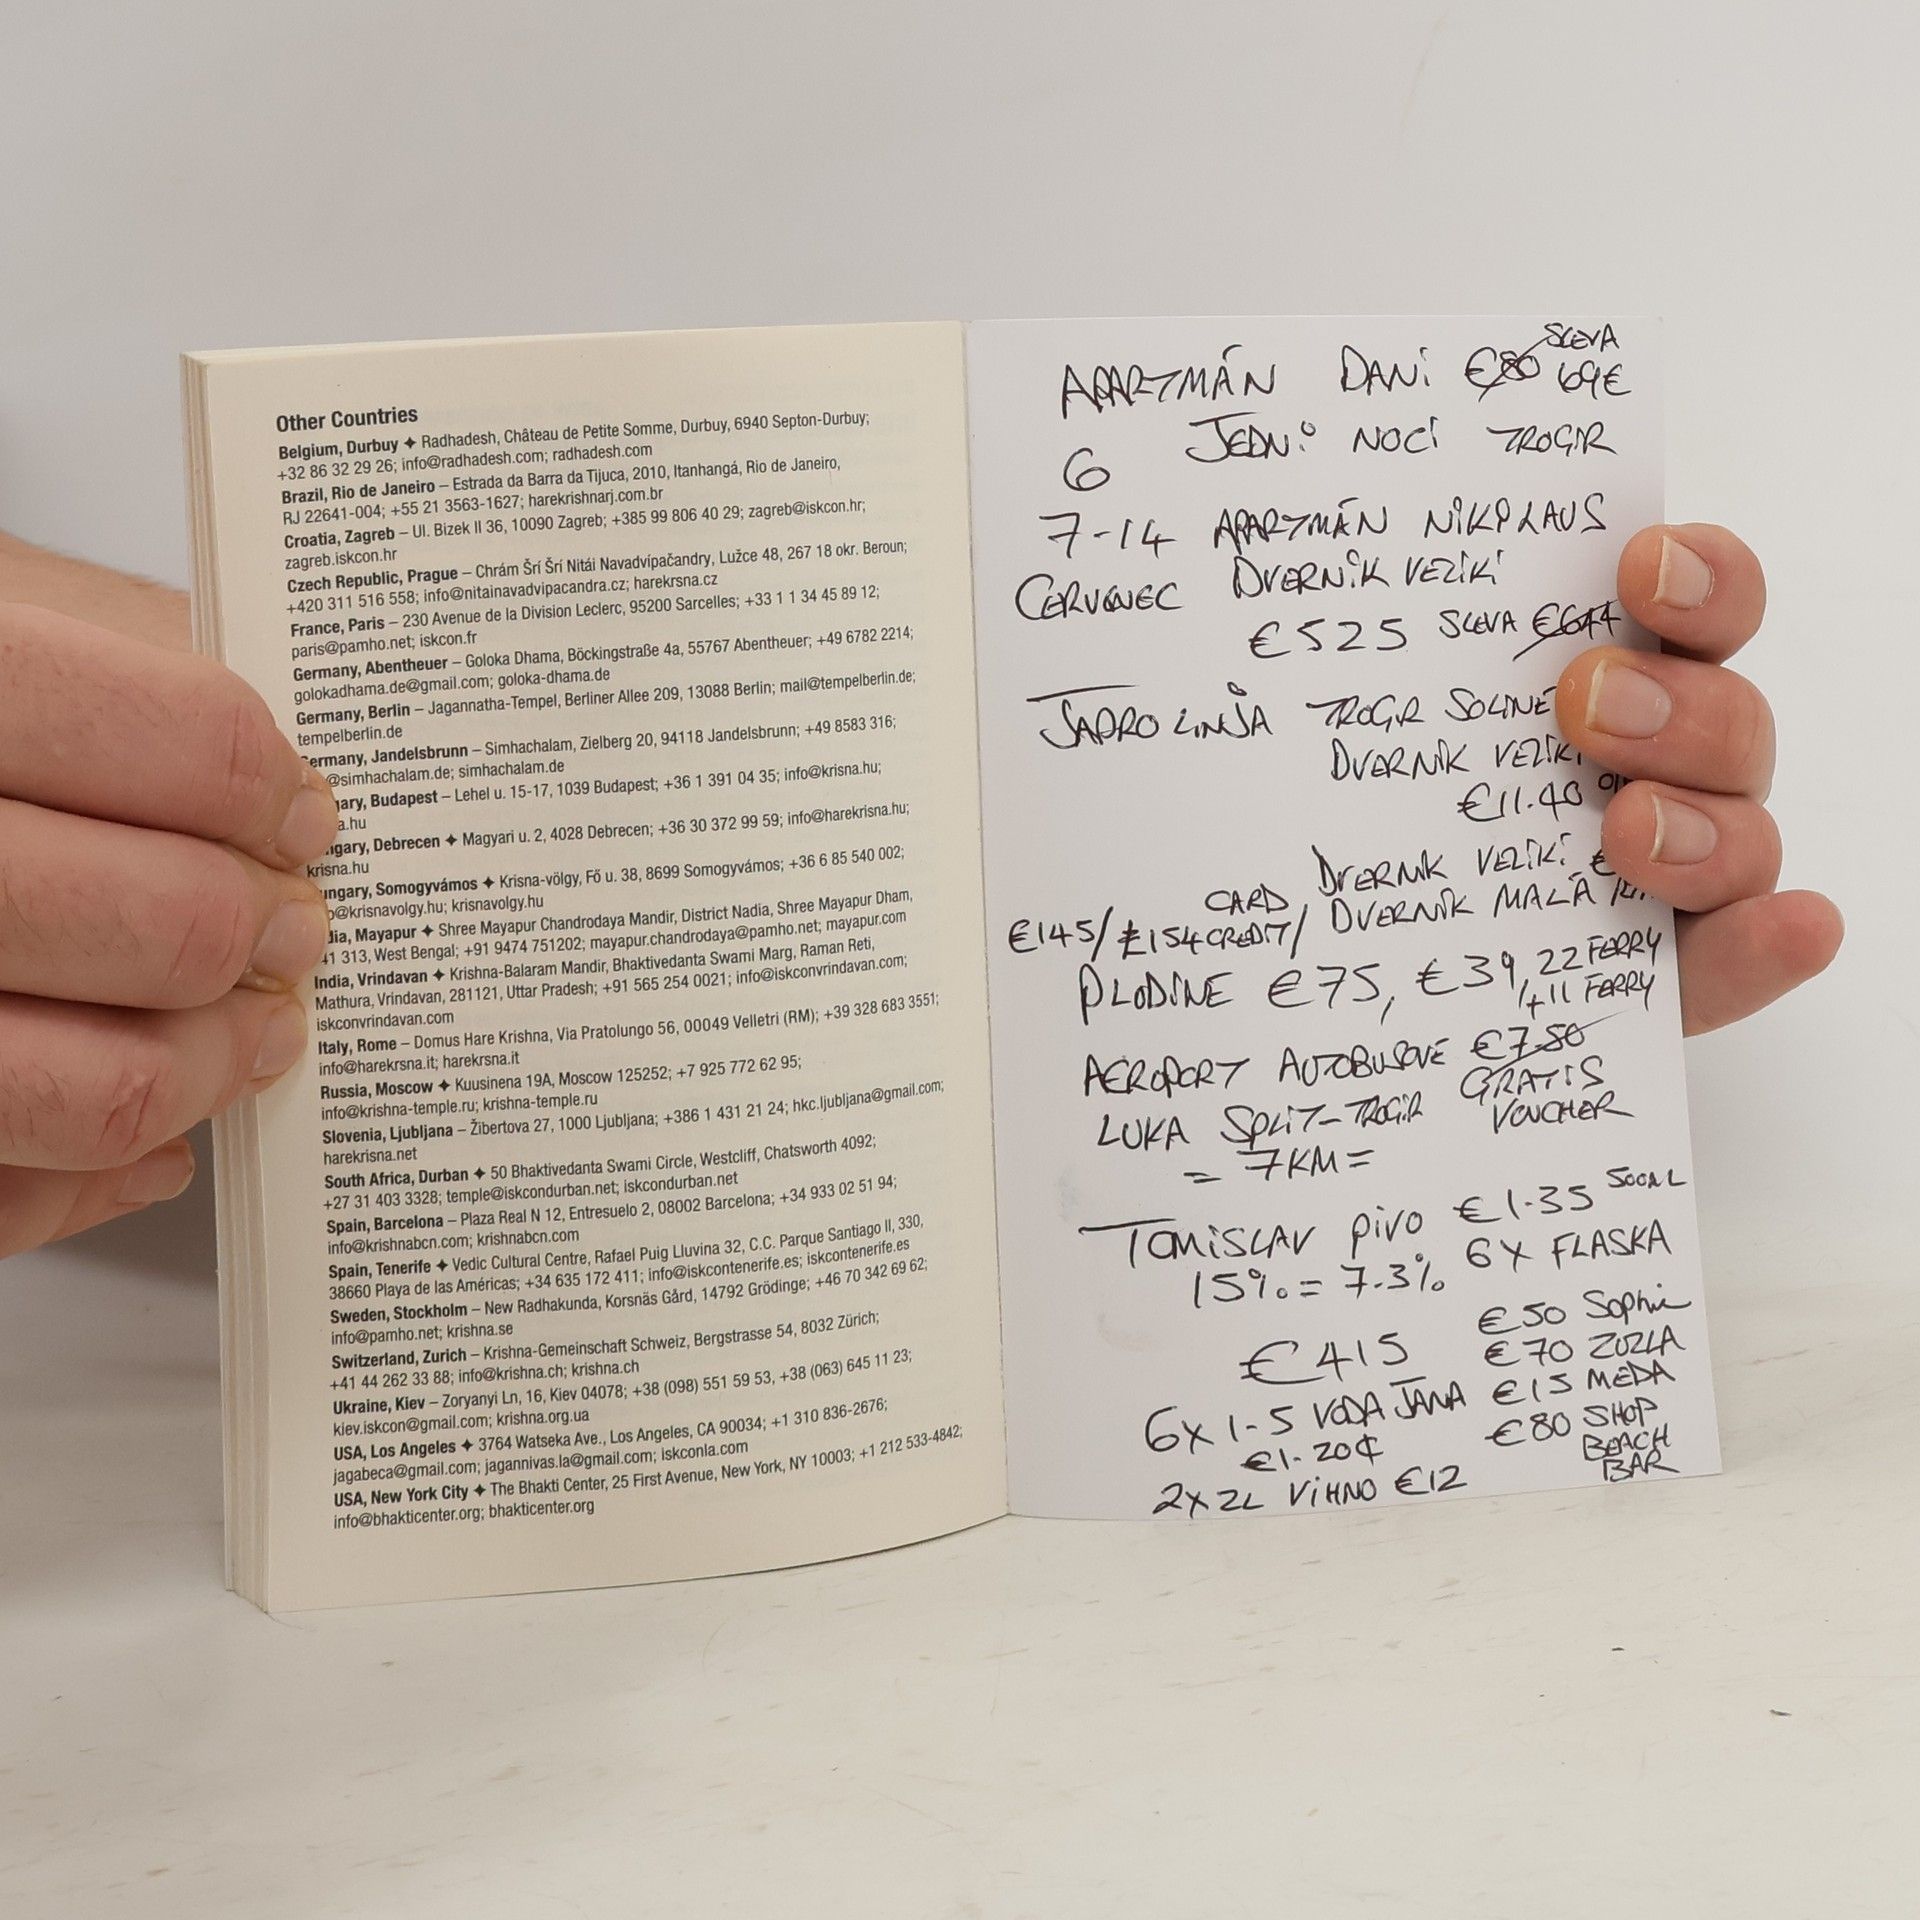 Other Countries
Belgium, Durbuy ✦ Radhadesh, Château de Petite Somme, Durbuy, 6940 Septon-Durbuy;
+32 86 32 29 26; info@radhadesh.com; radhadesh.com
Brazil, Rio de Janeiro – Estrada da Barra da Tijuca, 2010, Itanhangá, Rio de Janeiro,
RJ 22641-004; +55 21 3563-1627; harekrishnarj.com.br
Croatia, Zagreb – Ul. Bizek II 36, 10090 Zagreb; +385 99 806 40 29; zagreb@iskcon.hr;
zagreb.iskcon.hr
Czech Republic, Prague – Chrám Šrí Šrí Nitái Navadvípačandry, Lužce 48, 267 18 okr. Beroun;
+420 311 516 558; info@nitainavadvipacandra.cz; harekrsna.cz
France, Paris – 230 Avenue de la Division Leclerc, 95200 Sarcelles; +33 1 1 34 45 89 12;
paris@pamho.net; iskcon.fr
Germany, Abentheuer – Goloka Dhama, Böckingstraße 4a, 55767 Abentheuer; +49 6782 2214;
golokadhama.de@gmail.com; goloka-dhama.de
Germany, Berlin – Jagannatha-Tempel, Berliner Allee 209, 13088 Berlin; mail@tempelberlin.de;
tempelberlin.de
ermany, Jandelsbrunn – Simhachalam, Zielberg 20, 94118 Jandelsbrunn; +49 8583 316;
@simhachalam.de; simhachalam.de
gary, Budapest – Lehel u. 15-17, 1039 Budapest; +36 1 391 04 35; info@krisna.hu;
a.hu
gary, Debrecen ✦ Magyari u. 2, 4028 Debrecen; +36 30 372 99 59; info@harekrisna.hu;
krisna.hu
ungary, Somogyvámos ✦ Krisna-völgy, Fő u. 38, 8699 Somogyvámos; +36 6 85 540 002;
o@krisnavolgy.hu; krisnavolgy.hu
dia, Mayapur ✦ Shree Mayapur Chandrodaya Mandir, District Nadia, Shree Mayapur Dham,
41 313, West Bengal; +91 9474 751202; mayapur.chandrodaya@pamho.net; mayapur.com
India, Vrindavan ✦ Krishna-Balaram Mandir, Bhaktivedanta Swami Marg, Raman Reti,
Mathura, Vrindavan, 281121, Uttar Pradesh; +91 565 254 0021; info@iskconvrindavan.com;
iskconvrindavan.com
Italy, Rome – Domus Hare Krishna, Via Pratolungo 56, 00049 Velletri (RM); +39 328 683 3551;
info@harekrsna.it; harekrsna.it
Russia, Moscow ✦ Kuusinena 19A, Moscow 125252; +7 925 772 62 95;
info@krishna-temple.ru; krishna-temple.ru
Slovenia, Ljubljana – Žibertova 27, 1000 Ljubljana; +386 1 431 21 24; hkc.ljubljana@gmail.com;
harekrisna.net
South Africa, Durban ✦ 50 Bhaktivedanta Swami Circle, Westcliff, Chatsworth 4092;
+27 31 403 3328; temple@iskcondurban.net; iskcondurban.net
Spain, Barcelona – Plaza Real N 12, Entresuelo 2, 08002 Barcelona; +34 933 02 51 94;
info@krishnabcn.com; krishnabcn.com
Spain, Tenerife ✦ Vedic Cultural Centre, Rafael Puig Lluvina 32, C.C. Parque Santiago II, 330,
38660 Playa de las Américas; +34 635 172 411; info@iskcontenerife.es; iskcontenerife.es
Sweden, Stockholm – New Radhakunda, Korsnäs Gård, 14792 Grödinge; +46 70 342 69 62;
info@pamho.net; krishna.se
Switzerland, Zurich – Krishna-Gemeinschaft Schweiz, Bergstrasse 54, 8032 Zürich;
+41 44 262 33 88; info@krishna.ch; krishna.ch
Ukraine, Kiev – Zoryanyi Ln, 16, Kiev 04078; +38 (098) 551 59 53, +38 (063) 645 11 23;
kiev.iskcon@gmail.com; krishna.org.ua
USA, Los Angeles ✦ 3764 Watseka Ave., Los Angeles, CA 90034; +1 310 836-2676;
jagabeca@gmail.com; jagannivas.la@gmail.com; iskconla.com
USA, New York City ✦ The Bhakti Center, 25 First Avenue, New York, NY 10003; +1 212 533-4842;
info@bhakticenter.org; bhakticenter.org
SLEVA
APARTMÁN DANI €80 69€
6 JEDNI NOCI TROGIR
7-14 APARTMÁN NIKOLAUS
CERVENEC DVERNIK VELIKI
€525 SLEVA €644
JADROLINJA TROGIR SOLINE
DVERNIK VELIKI
€11.40
DVERNIK VELIKI €
CARD
€145/£154 CREDIT/ DVERNIK MALA
PLODINE €75, €39, 22 FERRY
+11 FERRY
AEROPORT AUTOBUSOVE €7.50
GRATIS
LUKA SPLIT-TROGIR VOUCHER
= 7KM =
TOMISLAV PIVO €1.35 500ML
15% = 7.3% 6X FLASKA
€50 Sophie
€415 €70 ZUZLA
6X 1-5 VODA JANA €15 MEDA
€1.20¢ €80 SHOP
BEACH
BAR
2X 2L VIHNO €12